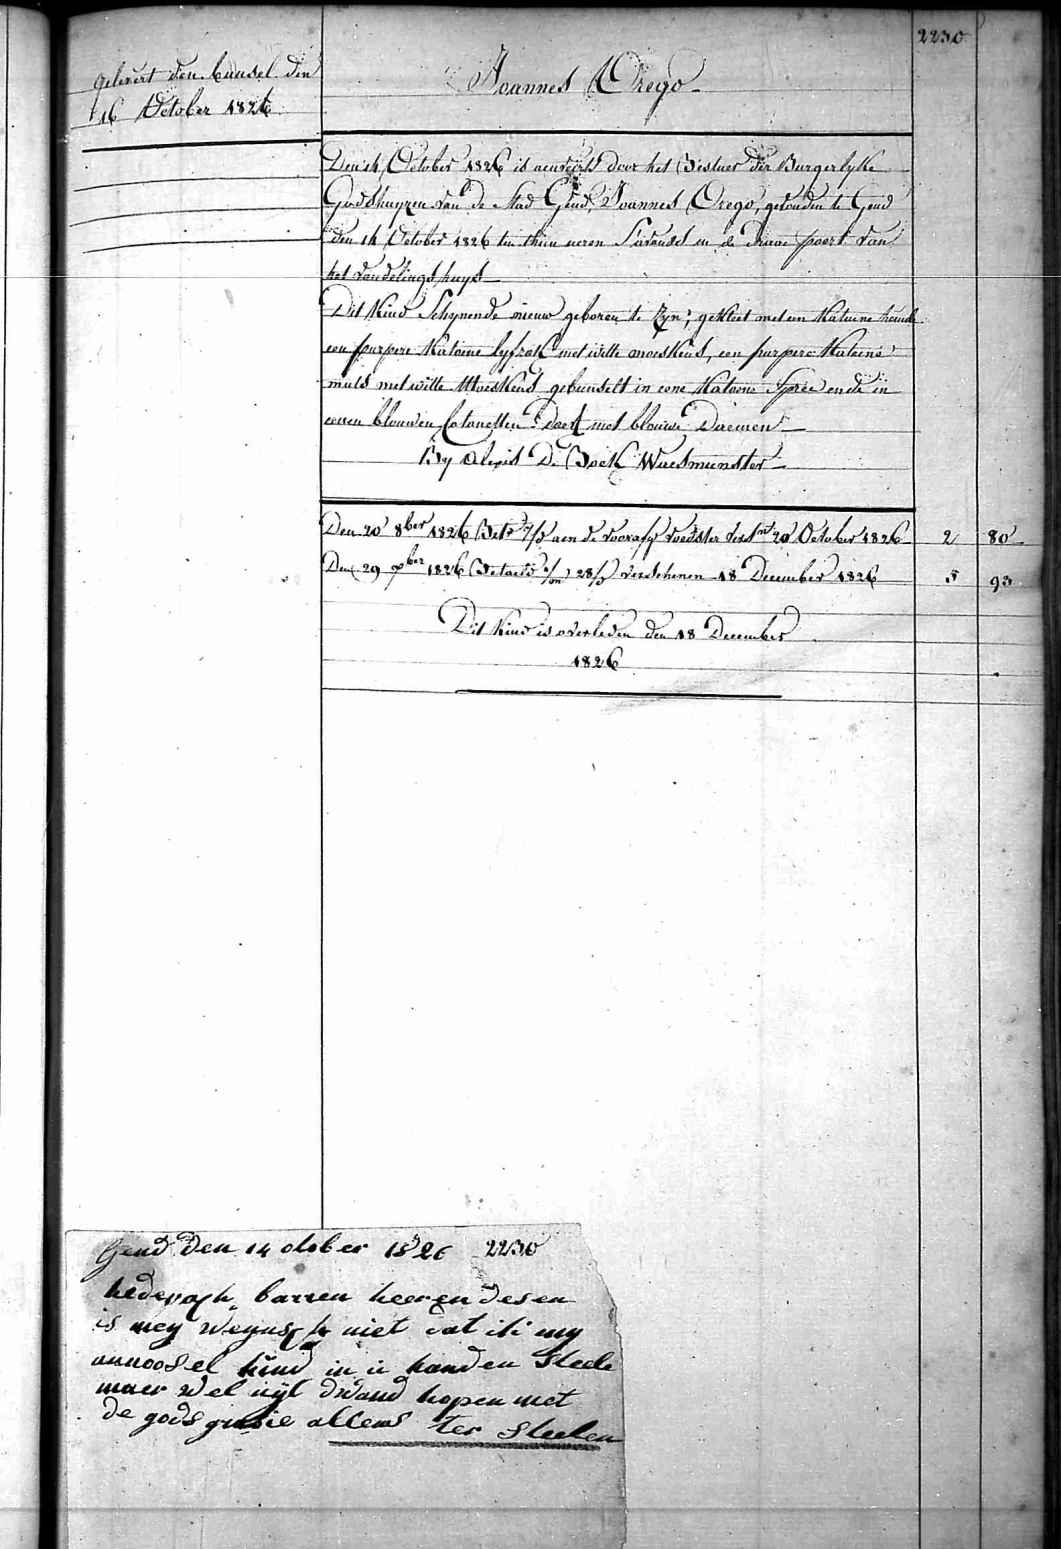 2230
gelevert den bunsel den
16 October 1826
Joannes Orego
Den 14 October 1826 is aenveird door het Bestuer der Burgerlyke
Godshuyzen van de Stad Gend, Joannes Orego, gevonden te Gend
den 14 October 1826 ten thien ueren s'avonds in de draae poort van
het vondelings huys
Dit Kind Schynende nieuw geboren te Zyn; gekleet met een Katoene
een purpere Katoene lyfrok met witte moeskens, een purpere Katoene
muts met witte Moeskens gebunselt in eene Katoene Spree ende in
eenen blouwen Cotonetten doek met blouwe
By Alexis De Bock Waesmunster
Den 20 8ber 1826 aen de voedster 20 October 1826 2 80
Den 29 1826 Betaeld verschenen 18 December 1826 5 93
Dit Kind is overleden den 18 December
1826
Gend den 14 otober 1826 2230
barren heeren desen
is mey niet dat ik my
onnoosel kind in u handen Steele
maer wel uyt dwand hopen met
de gods grasie alleens ter Steelen